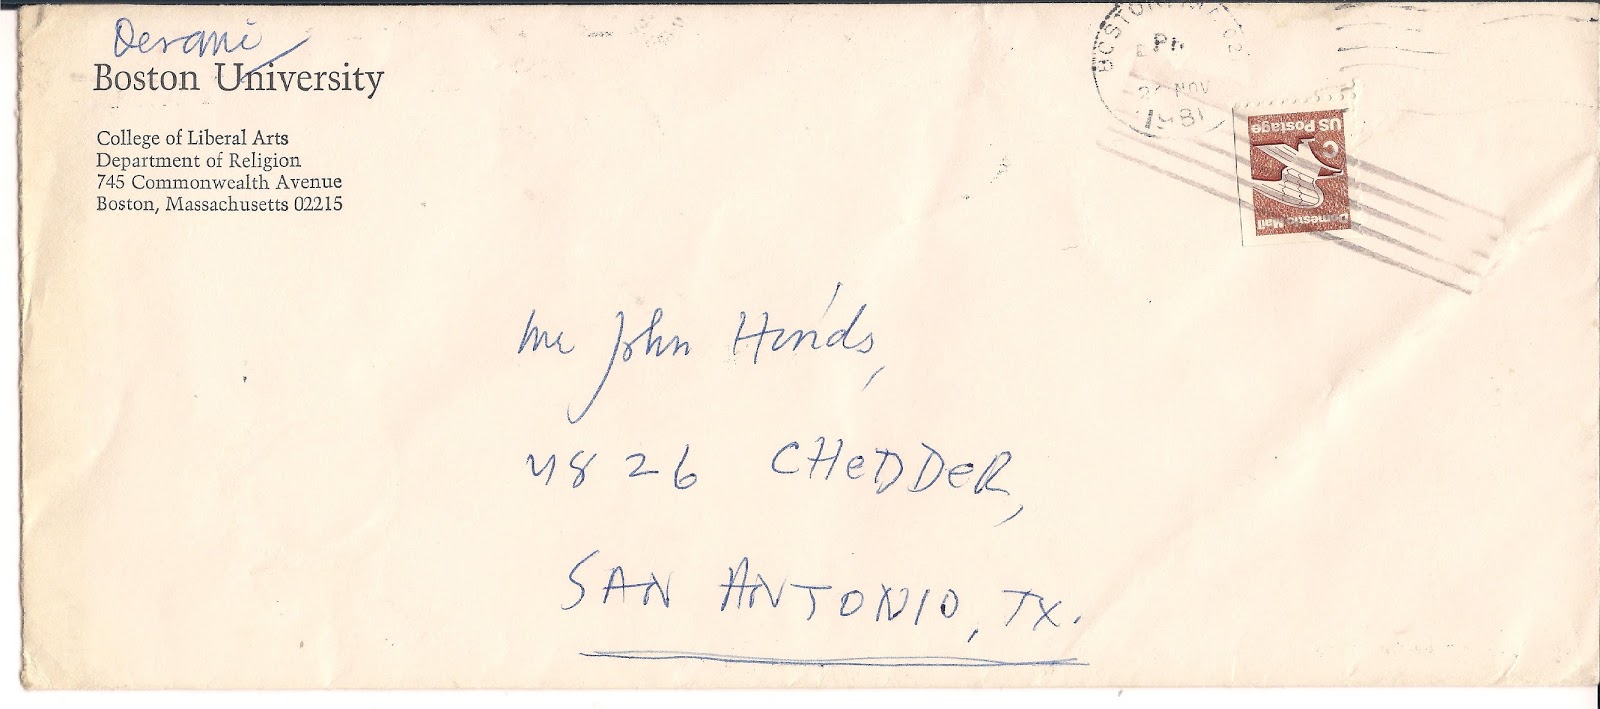 Devani
Boston University
College of Liberal Arts
Department of Religion
745 Commonwealth Avenue
Boston, Massachusetts 02215
BOSTON, 
PM
NOV
1981
US Postage
C
Domestic Mail
Mr John Hinds,
4826 CHeDDeR,
SAN ANTONIO, TX.